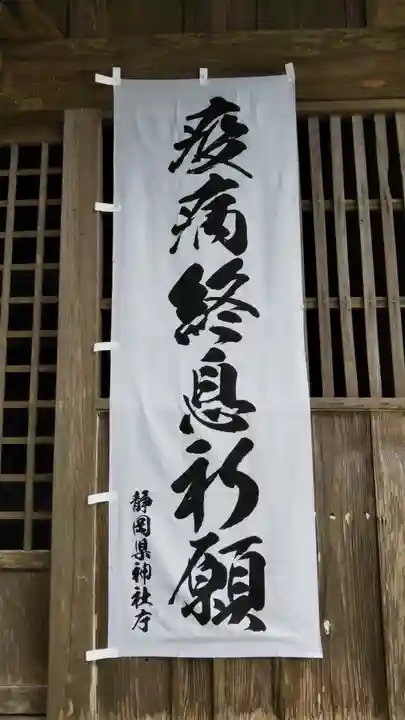 疫病終息祈願
静岡県神社庁